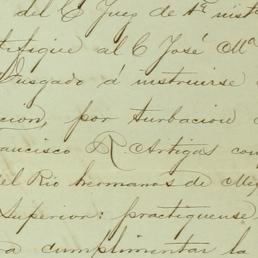 del C Juez de 1ª inst
tifique al C José Mª
Jusgado á instruirse
cion, por turbacion
rancisco R Artigas con
el Rio hermanos de Me
Superior: practiquense
ra cumplimentar la